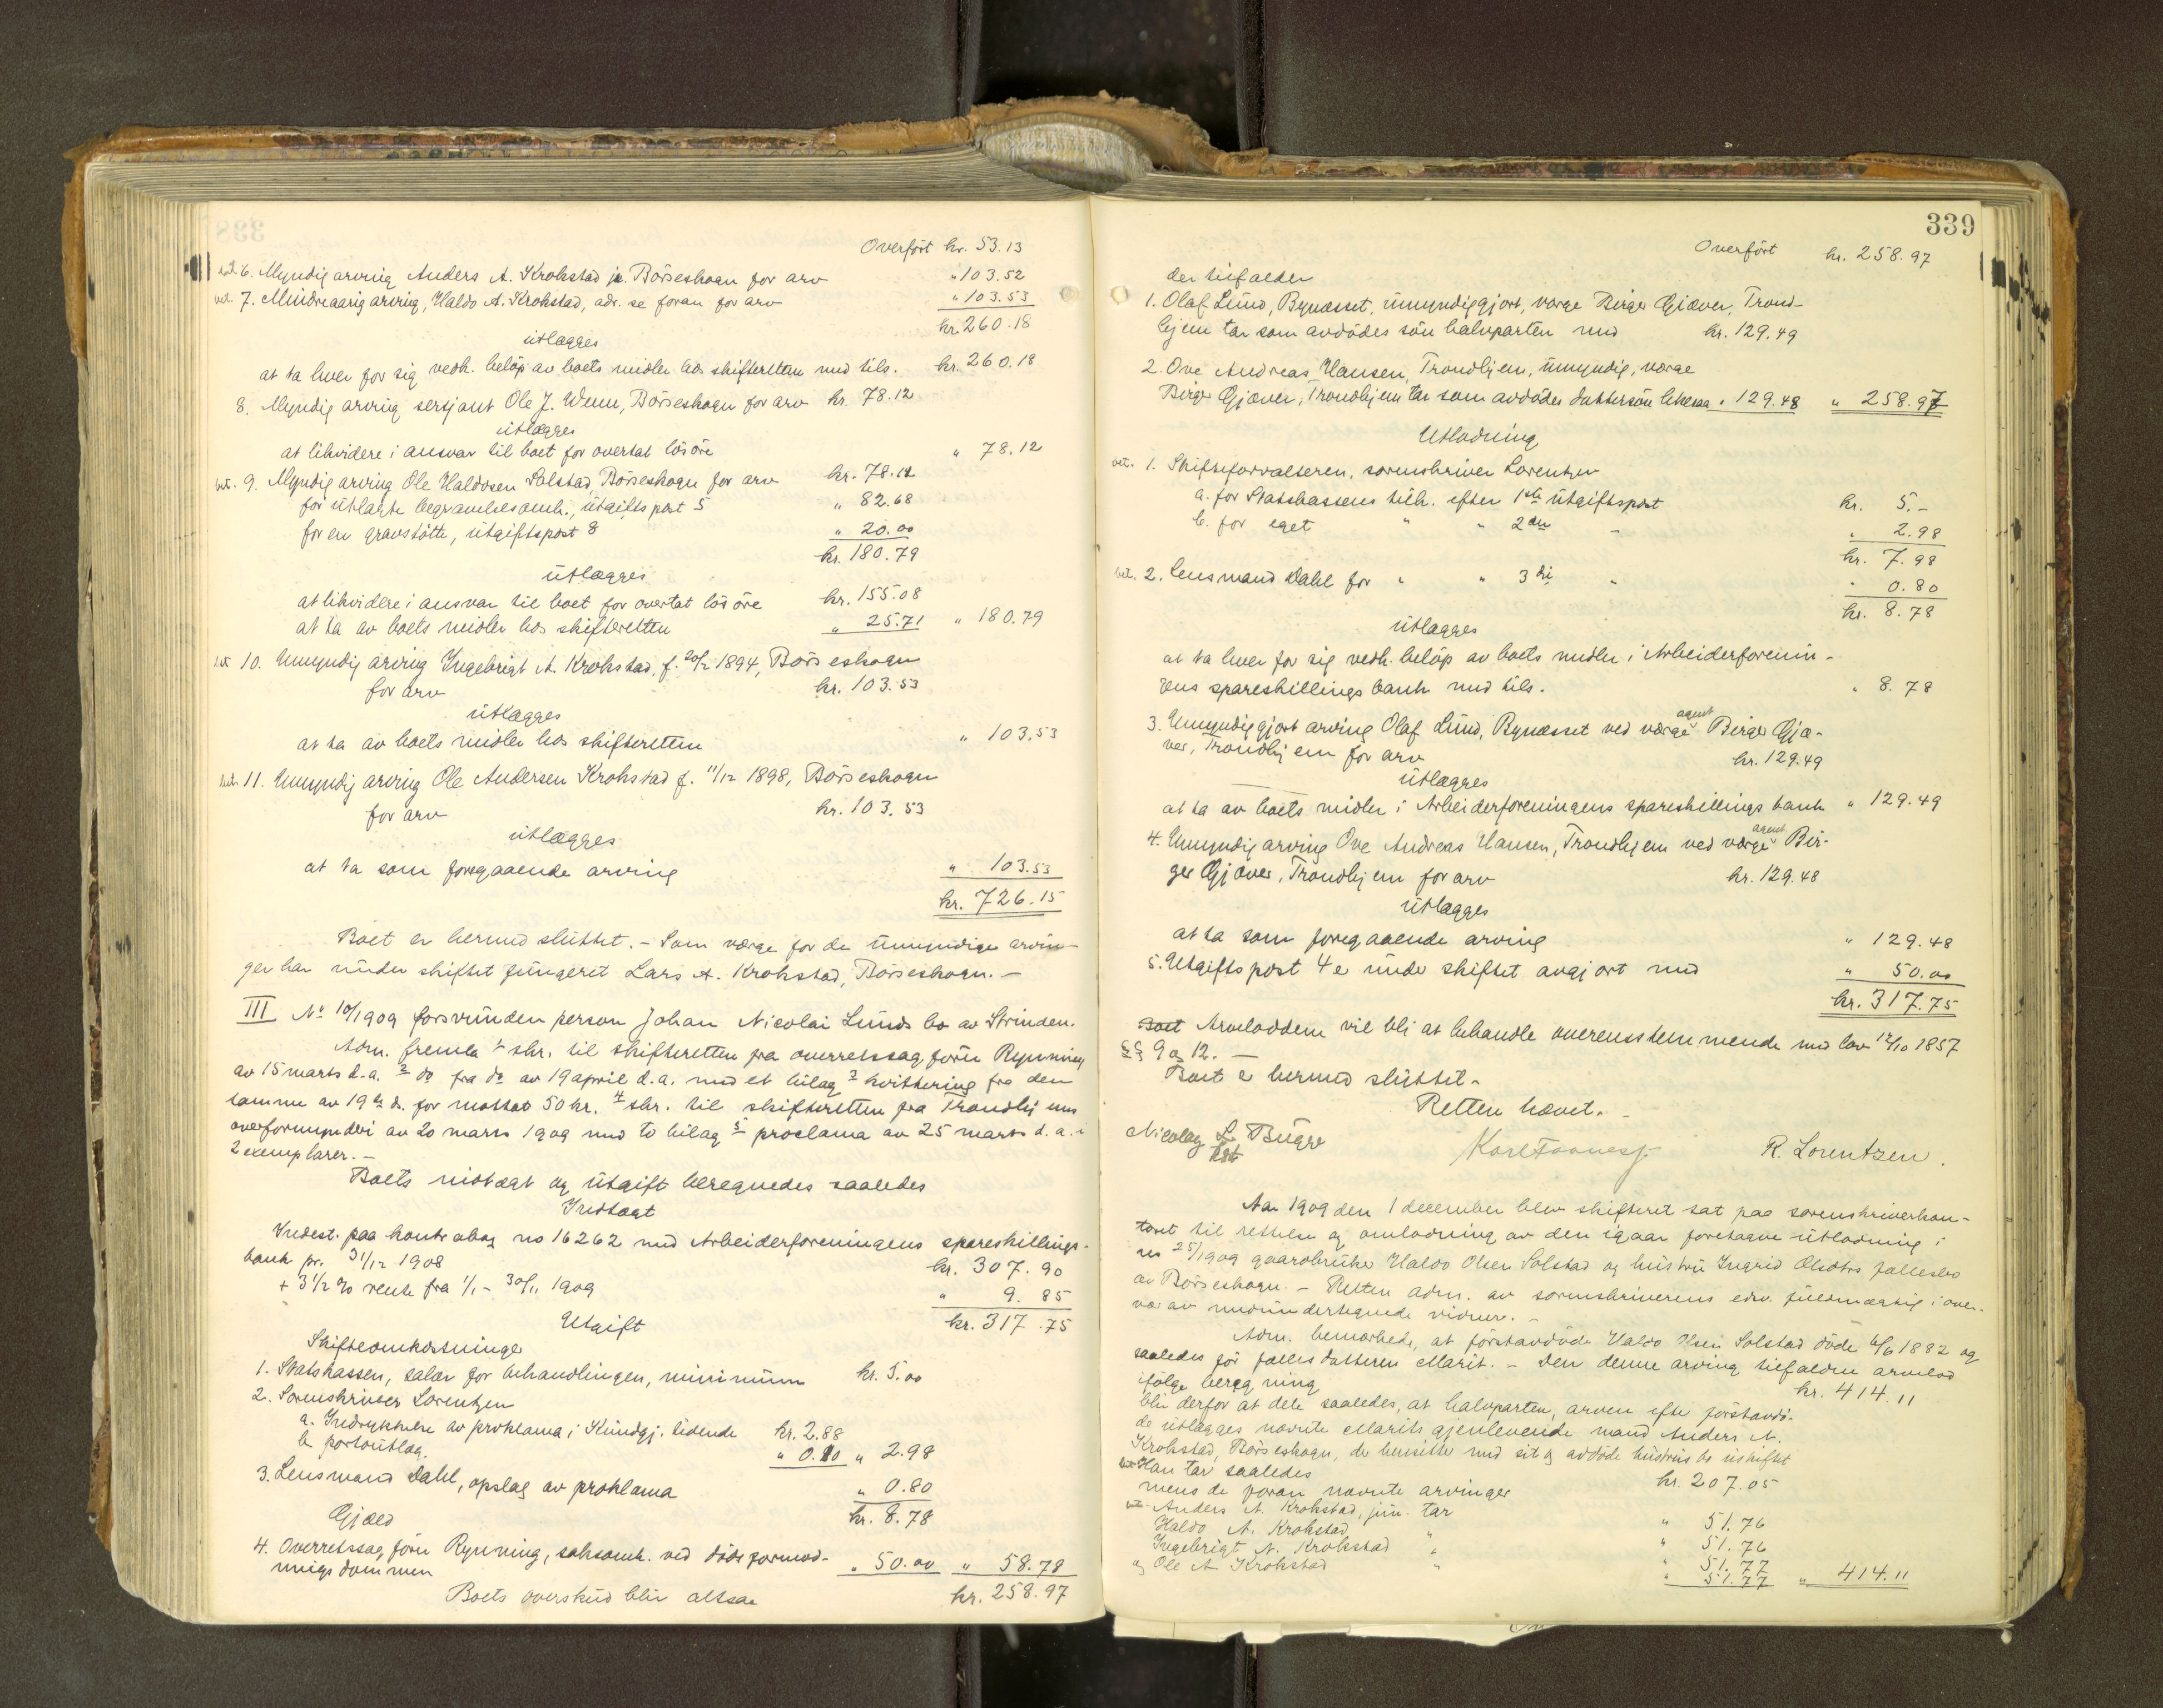 Overført kr. 53.13
bet. 6. Myndig arving Anders A. Krokstad jr. Børseskogn for arv " 103.52
bet. 7. Mindreaarig arving, Haldo A. Krokstad, adr. se foran for arv " 103.53
kr. 260.18
utlægges
at ta hver for sig vedk. beløp av boets midler hos skifteretten med tils. kr. 260.18
8. Myndig arving sersjant Ole J. Wenn, Børseskogn for arv kr. 78.12
utlægges
at likvidere i ansvar til boet for overtat løsøre " 78.12
bet. 9. Myndig arving Ole Haldosen Solstad Børseskogn for arv kr. 78.11
for utlagte begravelsesomk., utgiftspost 5 " 82.68
for en gravstøtte, utgiftspost 8 " 20.00
kr. 180.79
utlægges
at likvidere i ansvar til boet for overtat løsøre kr. 155.08
at ta av boets midler hos skifteretten " 25.71 " 180.79
bet. 10. Umyndig arving Ingebrigt A. Krokstad, f. 20/2 1894, Børseskogn
for arv kr. 103.53
utlægges
at ta av boets midler hos skifteretten " 103.53
bet. 11. Umyndig arving Ole Andersen Krokstad f. 11/12 1898, Børseskogn
for arv kr. 103.53
utlægges
at ta som foregaaende arving " 103.53
kr. 726.15
Boet er hermed sluttet. - Som værge for de umyndige arvin-
ger har under skiftet fungeret Lars A. Krokstad, Børseskogn. -
III No 10/1909 forsvunden person Johan Nicolai Lunds bo av Strinden.
Adm. fremla 1 skr. til skifteretten fra overretssagfører Rynning
av 15 marts d.a. 2 do fra do av 19 april d.a. med et bilag 3 kvittering fra den
samme av 19 ds. for mottat 50 kr. 4 skr. til skifteretten fra Trondhjems
overformynderi av 20 mars 1909 med to bilag 5 proclama av 25 marts d.a. i
2 exemplarer. -
Boets indtægt og utgift beregnedes saaledes
Indtægt
Indest. paa kontrabog no 16262 med Arbeiderforeningens spareskillings-
bank pr. 31/12 1908 kr. 307.90
+ 3 1/2 % rente fra 1/1 - 30/11 1909 " 9.85
Utgift kr. 317.75
Skifteomkostninger
1. Statskassen, salær for behandlingen, minimum kr. 5.00
2. Sorenskriver Lorentzen
a. Indrykkelse av proklama i Kundgj. tidende kr. 2.88
b. portoutlæg " 0.10 " 2.98
3. Lensmand Dahl, opslag av proklama " 0.80
Gjæld kr. 8.78
4. Overretssagfører Rynning, saksomk. ved dødsformod-
ningsdommen " 50.00 " 58.78
Boets overskud blir altsaa kr. 258.97
339
Overført kr. 258.97
der tilfalder
1. Olaf Lund, Bynæsset, umyndiggjort, værge Birger Gjæver, Trond-
hjem tar som avdødes søn halvparten med kr. 129.49
2. Ove Andreas Hansen, Trondhjem, umyndig, værge
Birger Gjæver, Trondhjem tar som avdødes dattersøn likesaa " 129.48 " 258.97
Utlodning
bet. 1. Skifteforvalteren, sorenskriver Lorentzen
a. for Statskassens tilh. efter 1ste utgiftspost kr. 5.-
b. for eget " " 2den - " 2.98
kr. 7.98
bet. 2. Lensmand Dahl for " " 3die " " 0.80
kr. 8.78
utlægges
at ta hver for sig vedk. beløp av boets midler i Arbeiderforenin-
gens spareskillingsbank med tils. " 8.78
3. Umyndiggjort arving Olaf Lund, Bynæsset ved værge agent Birger Gjæ-
ver, Trondhjem for arv kr. 129.49
utlægges
at ta av boets midler i Arbeiderforeningens spareskillingsbank " 129.49
4. Umyndig arving Ove Andreas Hansen, Trondhjem ved værge agent Bir-
ger Gjæver, Trondhjem for arv kr. 129.48
utlægges
at ta som foregaaende arving " 129.48
5. Utgiftspost 4 er under skiftet avgjort med " 50.00
kr. 317.75
Boet Arveloddene vil bli at behandle overensstemmende med lov 12/10 1857
§§ 9 og 12. -
Boet er hermed sluttet.-
Retten hævet. -
Nicolay L. Bugge
Karl Faanes
R. Lorentzen.
Aar 1909 den 1 december blev skifteret sat paa sorenskriverkon-
toret til rettelse og omlodning av den igaar foretagne utlodning i
no 25/1909 gaardbruker Haldo Olsen Solstad og hustru Ingrid Olsdtrs fællesbo
av Børseskogn. - Retten adm. av sorenskriverens edsv. fuldmægtig i over-
vær av medundertegnede vidner. -
Adm. bemærkede, at førstavdøde Haldo Olsen Solstad døde 6/6 1882 og
saaledes før fælles datteren Marit. - Den denne arving tilfaldne arvelod
ifølge beregning kr. 414.11
blir derfor at dele saaledes, at halvparten, arven efter førstavdø-
de utlægges nævnte Marits gjenlevende mand Anders A.
Krokstad, Børseskogn, der hensitter med sit og avdøde hustrus bo uskiftet
bet. Han tar saaledes kr. 207.05
mens de foran nævnte arvinger
bet. Anders A. Krokstad, jun. tar " 51.76
Haldo A. Krokstad " " 51.76
Ingebrigt A. Krokstad " " 51.77
og Ole A Krokstad " " 51.77 " 414.11